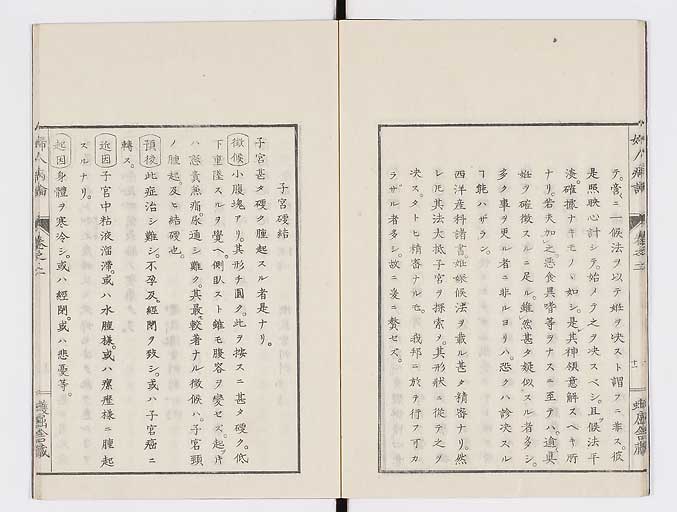 テ。嘗ニ一候法ヲ以テ妊ヲ决スト謂フニ牽ス。彼
是照映心計シテ。始メテ之ヲ决スベシ。且候法平
淡。確據ナキモノヽ如シ。是其神領意解スヘキ所
ナリ。若夫加之惡食異嗜等ヲナスニ至テハ。適眞
妊ヲ確徴スルニ足ル。雖然甚タ疑似スル者多シ。
多ク事ヲ更ルル者ニ非ルヨリハ。恐クハ診决スル
ヿ能ハザラン。
西洋産科諸書。妊娠候法ヲ載ル甚タ精審ナリ。然
レ𪜈其法大抵子宮ヲ探索ノ。其形狀ニ從テ之ヲ
决ス。タトヒ精審ナルモ。我邦ニ於テ行フ可カ
ラザル者多シ。故ニ爰ニ贅セズ。
婦人病論
卷之二
子宮硬結
子宮甚タ硬ク腫起スル者是ナリ。
徴候 小腹塊アリ。其形チ圓ク。此ヲ按スニ甚タ硬ク。低
下重墜スルヲ覺ヘ。側臥スト雖モ腹容ヲ變セズ。起𪜈
ハ感責蒸痛。尿通シ難ク。其最較著ナル徴候ハ。子宮頸
ノ腫起及ヒ結硬也。
預後 此症治シ難シ。不孕及經閉ヲ致シ。或ハ子宮癌ニ
轉ス。
近因 子宮中粘液溜滯。或ハ水腫樣。或ハ瘰癧樣ニ腫起
スルナリ。
起因 身體ヲ寒冷シ。或ハ經閉。或ハ悲憂等。
婦人病論
卷之二